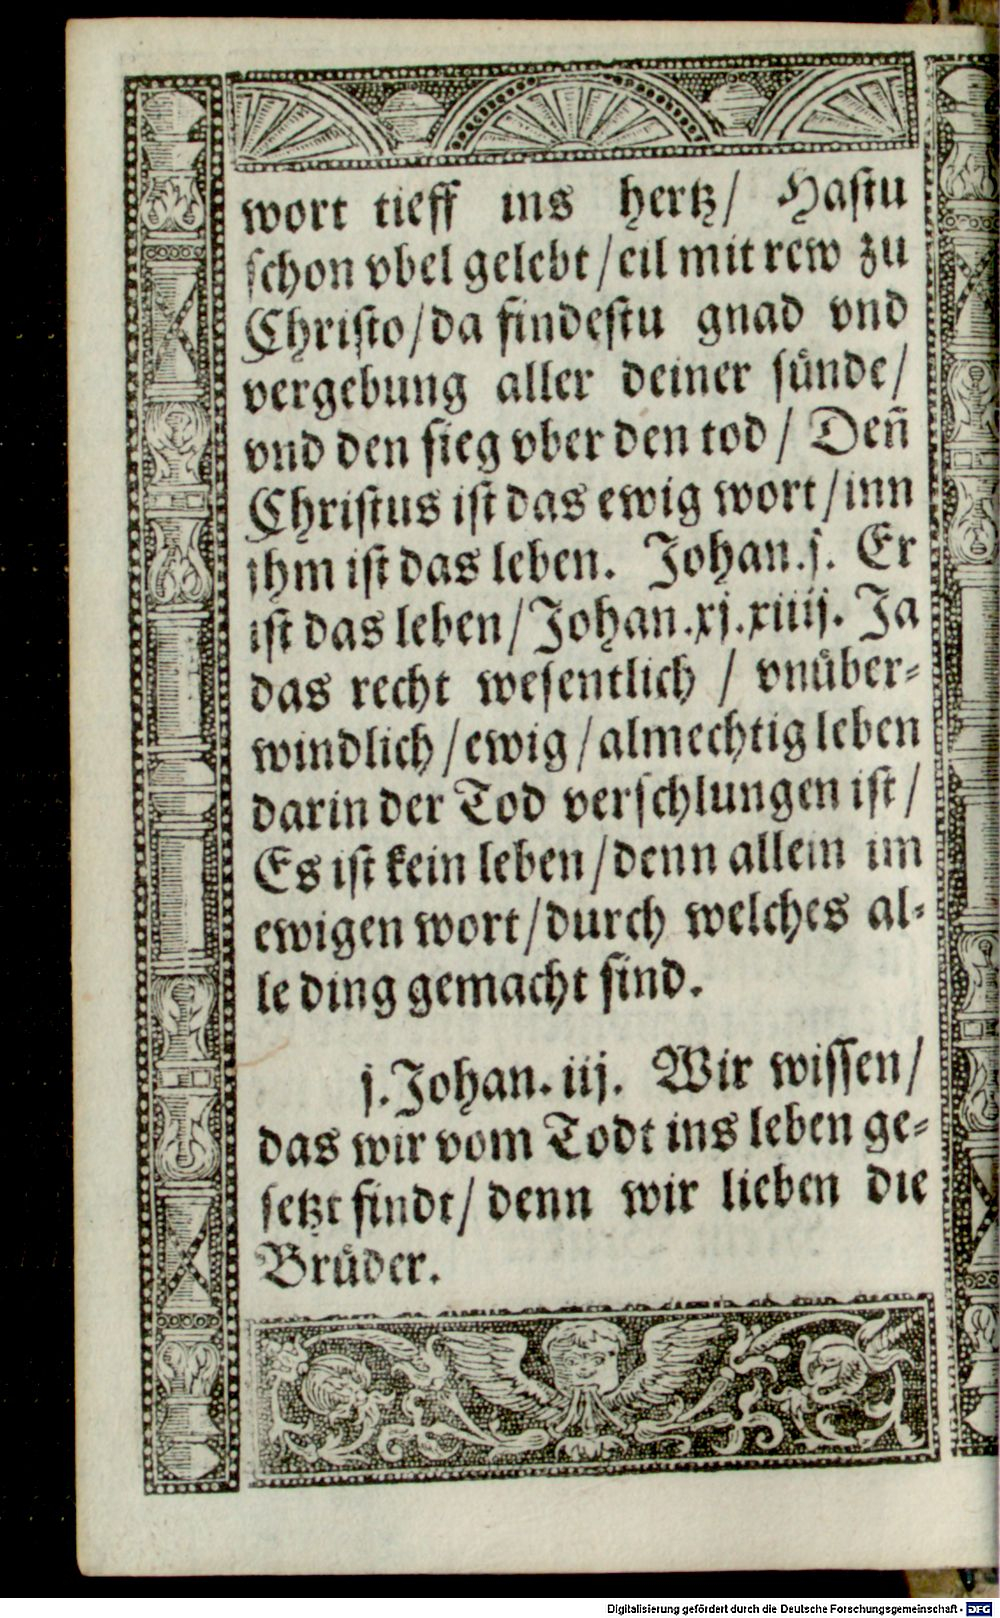 wort tieff ins hertz/ Hastu
schon vbel gelebt/eil mit rew zu
Christo/da findestu gnad vnd
vergebung aller deiner sünde/
vnd den sieg vber den tod/ Deñ
Christus ist das ewig wort/inn
ihm ist das leben. Johan.j. Er
ist das leben/Johan.xj.xiiij. Ja
das recht wesentlich / vnüber-
windlich/ewig/almechtig leben
darin der Tod verschlungen ist/
Es ist kein leben/denn allein im
ewigen wort/durch welches al-
le ding gemacht sind.
j.Johan.iij. Wir wissen/
das wir vom Todt ins leben ge-
setzt sindt/ denn wir lieben die
Brüder.
Digitalisierung gefördert durch die Deutsche Forschungsgemeinschaft - DFG